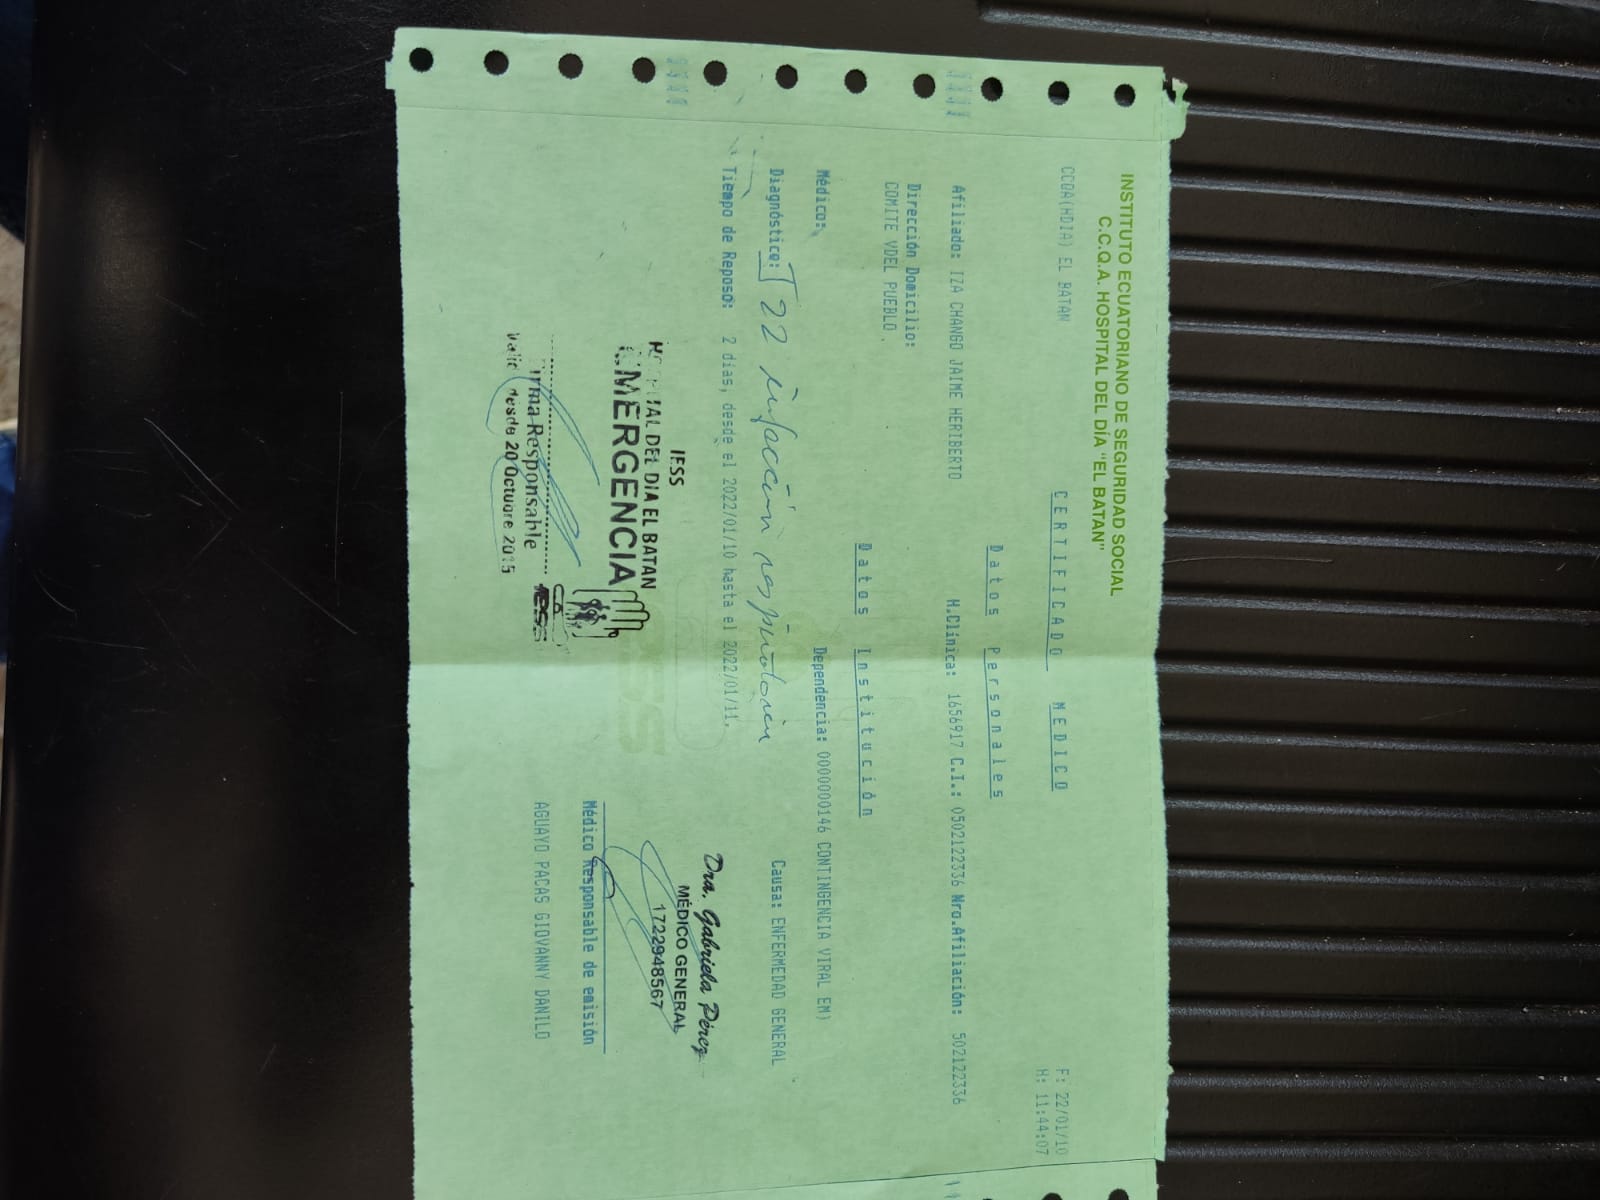 INSTITUTO ECUATORIANO DE SEGURIDAD SOCIAL
C.C.Q.A. HOSPITAL DEL DÍA "EL BATAN"
CCQA(HDIA) EL BATAN
CERTIFICADO MEDICO
F: 22/01/10
H: 11:44:07
Datos Personales
Afiliado: IZA CHANGO JAIME HERIBERTO H.Clínica: 1656917 C.I.: 0502122336 Nro.Afiliación: 502122336
Dirección Domicilio:
COMITE VDEL PUEBLO
Datos Institución
Médico: Dependencia: 0000000146 CONTINGENCIA VIRAL EM)
Diagnóstico: J22 infección respiratoria Causa: ENFERMEDAD GENERAL
Tiempo de Reposo: 2 días, desde el 2022/01/10 hasta el 2022/01/11.
IESS
HOSPITAL DEL DIA EL BATAN
EMERGENCIA
Firma Responsable
Valido desde 20 Octubre 2015
IESS
Dra. Gabriela Pérez
MÉDICO GENERAL
1722948567
Médico Responsable de emisión
AGUAYO PACAS GIOVANNY DANILO